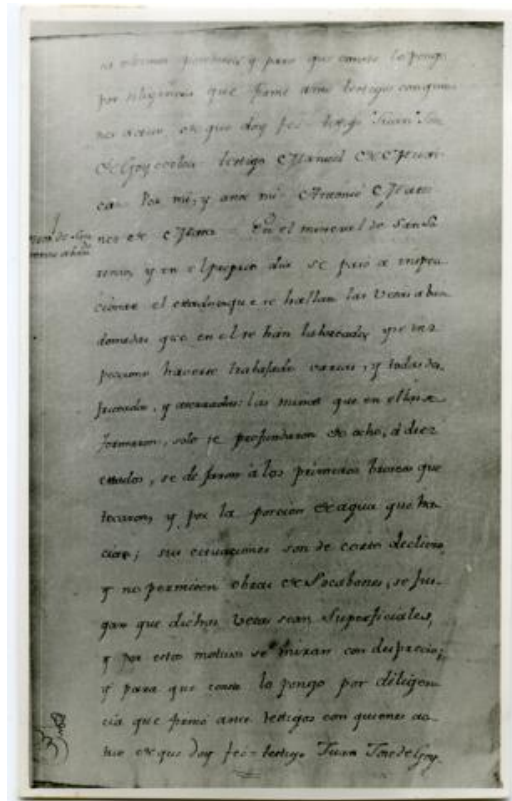 y para que conste lo pongo
por diligencia que firmé ante testigos con quie
nes actuo, de que doy feé - testigo Juan José
de Goycoechea testigo Manuel de
Por mi, y ante mi Antonio
nes de En el mineral de San Lo
renzo, y en el propio dia se pasó a inspec
cionar el estado que se hallan las Vetas aban
donadas que en el se hán laboreado, que ins
peccioné haverse trabajado varias, y todas
y aterradas: las minas que en ellas se
formaron, solo se profundaron de ocho, á diez
estados, se dejaron á los primeros
tocaron, y por la porcion de agua que ha
cían; sus situaciones son de corto declivio,
y no permiten obras de Socabones, se juz
gan que dichas Vetas sean Superficiales,
y por estos motivos se miran con desprecio;
y para que conste lo pongo por diligen
cia que firmé ante testigos con quienes ac
tuo de que doy feé - testigo Juan José de Goy